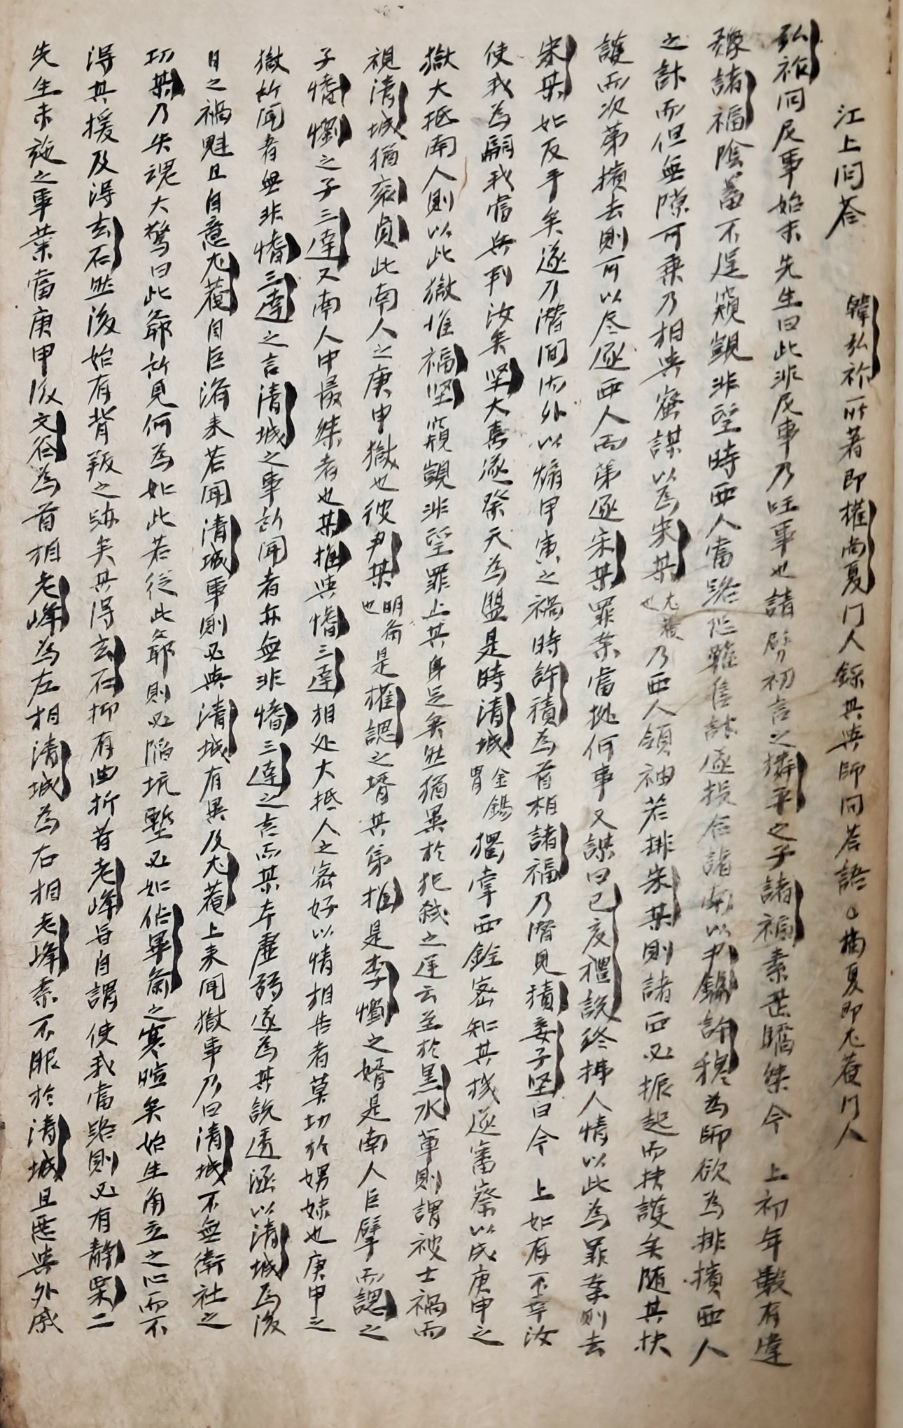 江上問答 韓弘祚所著即權尙夏門人錄其與師問答語也尙夏即尤菴門人
弘祚問反事始末先生曰此非反事乃旺事也諸勝初言之麟平之子諸福素甚驕桀今 上初年數有違
豫諸福陰蓄不逞窺覬非望時西人當路陰雖售計遂投合諸南以尹鑴許穆爲師欲爲排擯西人
之計而但無隙可乘乃相與密謀以爲宋某尤菴也乃西人領袖若排宋某則諸西必振起而扶護矣隨其扶
護而次第擯去則可以尽逐西人而第逐宋某罪案當抛何事又謀曰己亥禮說終拂人情以此爲罪案則去
宋某如反手矣遂乃潛間內外以煽甲寅之禍時許積爲首相諸福乃潛見積妾子堅曰今 上如有不幸汝
使我爲嗣我當兵判汝矣堅大喜遂祭天爲盟是時淸城金錫冑獨掌西銓密知其機遂審察以成庚申之
獄大抵南人則以此獄惟福堅窺覬非望罪上其身足矣然猶異於犯弑之逆云至於黑水軍則謂被士禍而
視淸城猶袞貞此南人之庚申獄也彼尹某明齋也是權諰之壻其弟推是李𢢜之婿是南人巨擘而諰之
子愭𢢜之子三達又南人中最桀者也某推與愭三達相处大抵人之密好以情相告者莫切於娚妹也庚申之
獄所聞者無非愭三達之言淸城之事所聞者亦無非愭三達之言而某本虛弱遂爲其說透涵以淸城爲後
日之禍魁且自意尤菴自巨濟來若聞淸城事則必與淸城有異及尤菴上來聞獄事乃曰淸城不無衛社之
功某乃失魂大驚曰此爺所見何爲如此若從此爺則必陷坑塹必如佔畢齋之寒暄矣始生角立之心而不
得其援及得玄石然後始有背叛之跡矣其得玄石抑有曲折昔老峰每自謂使我當路則必有靜栗二
先生未施之事業當庚甲後文谷爲首相老峰爲左相淸城爲右相老峰素不服於淸城且惡與外戚